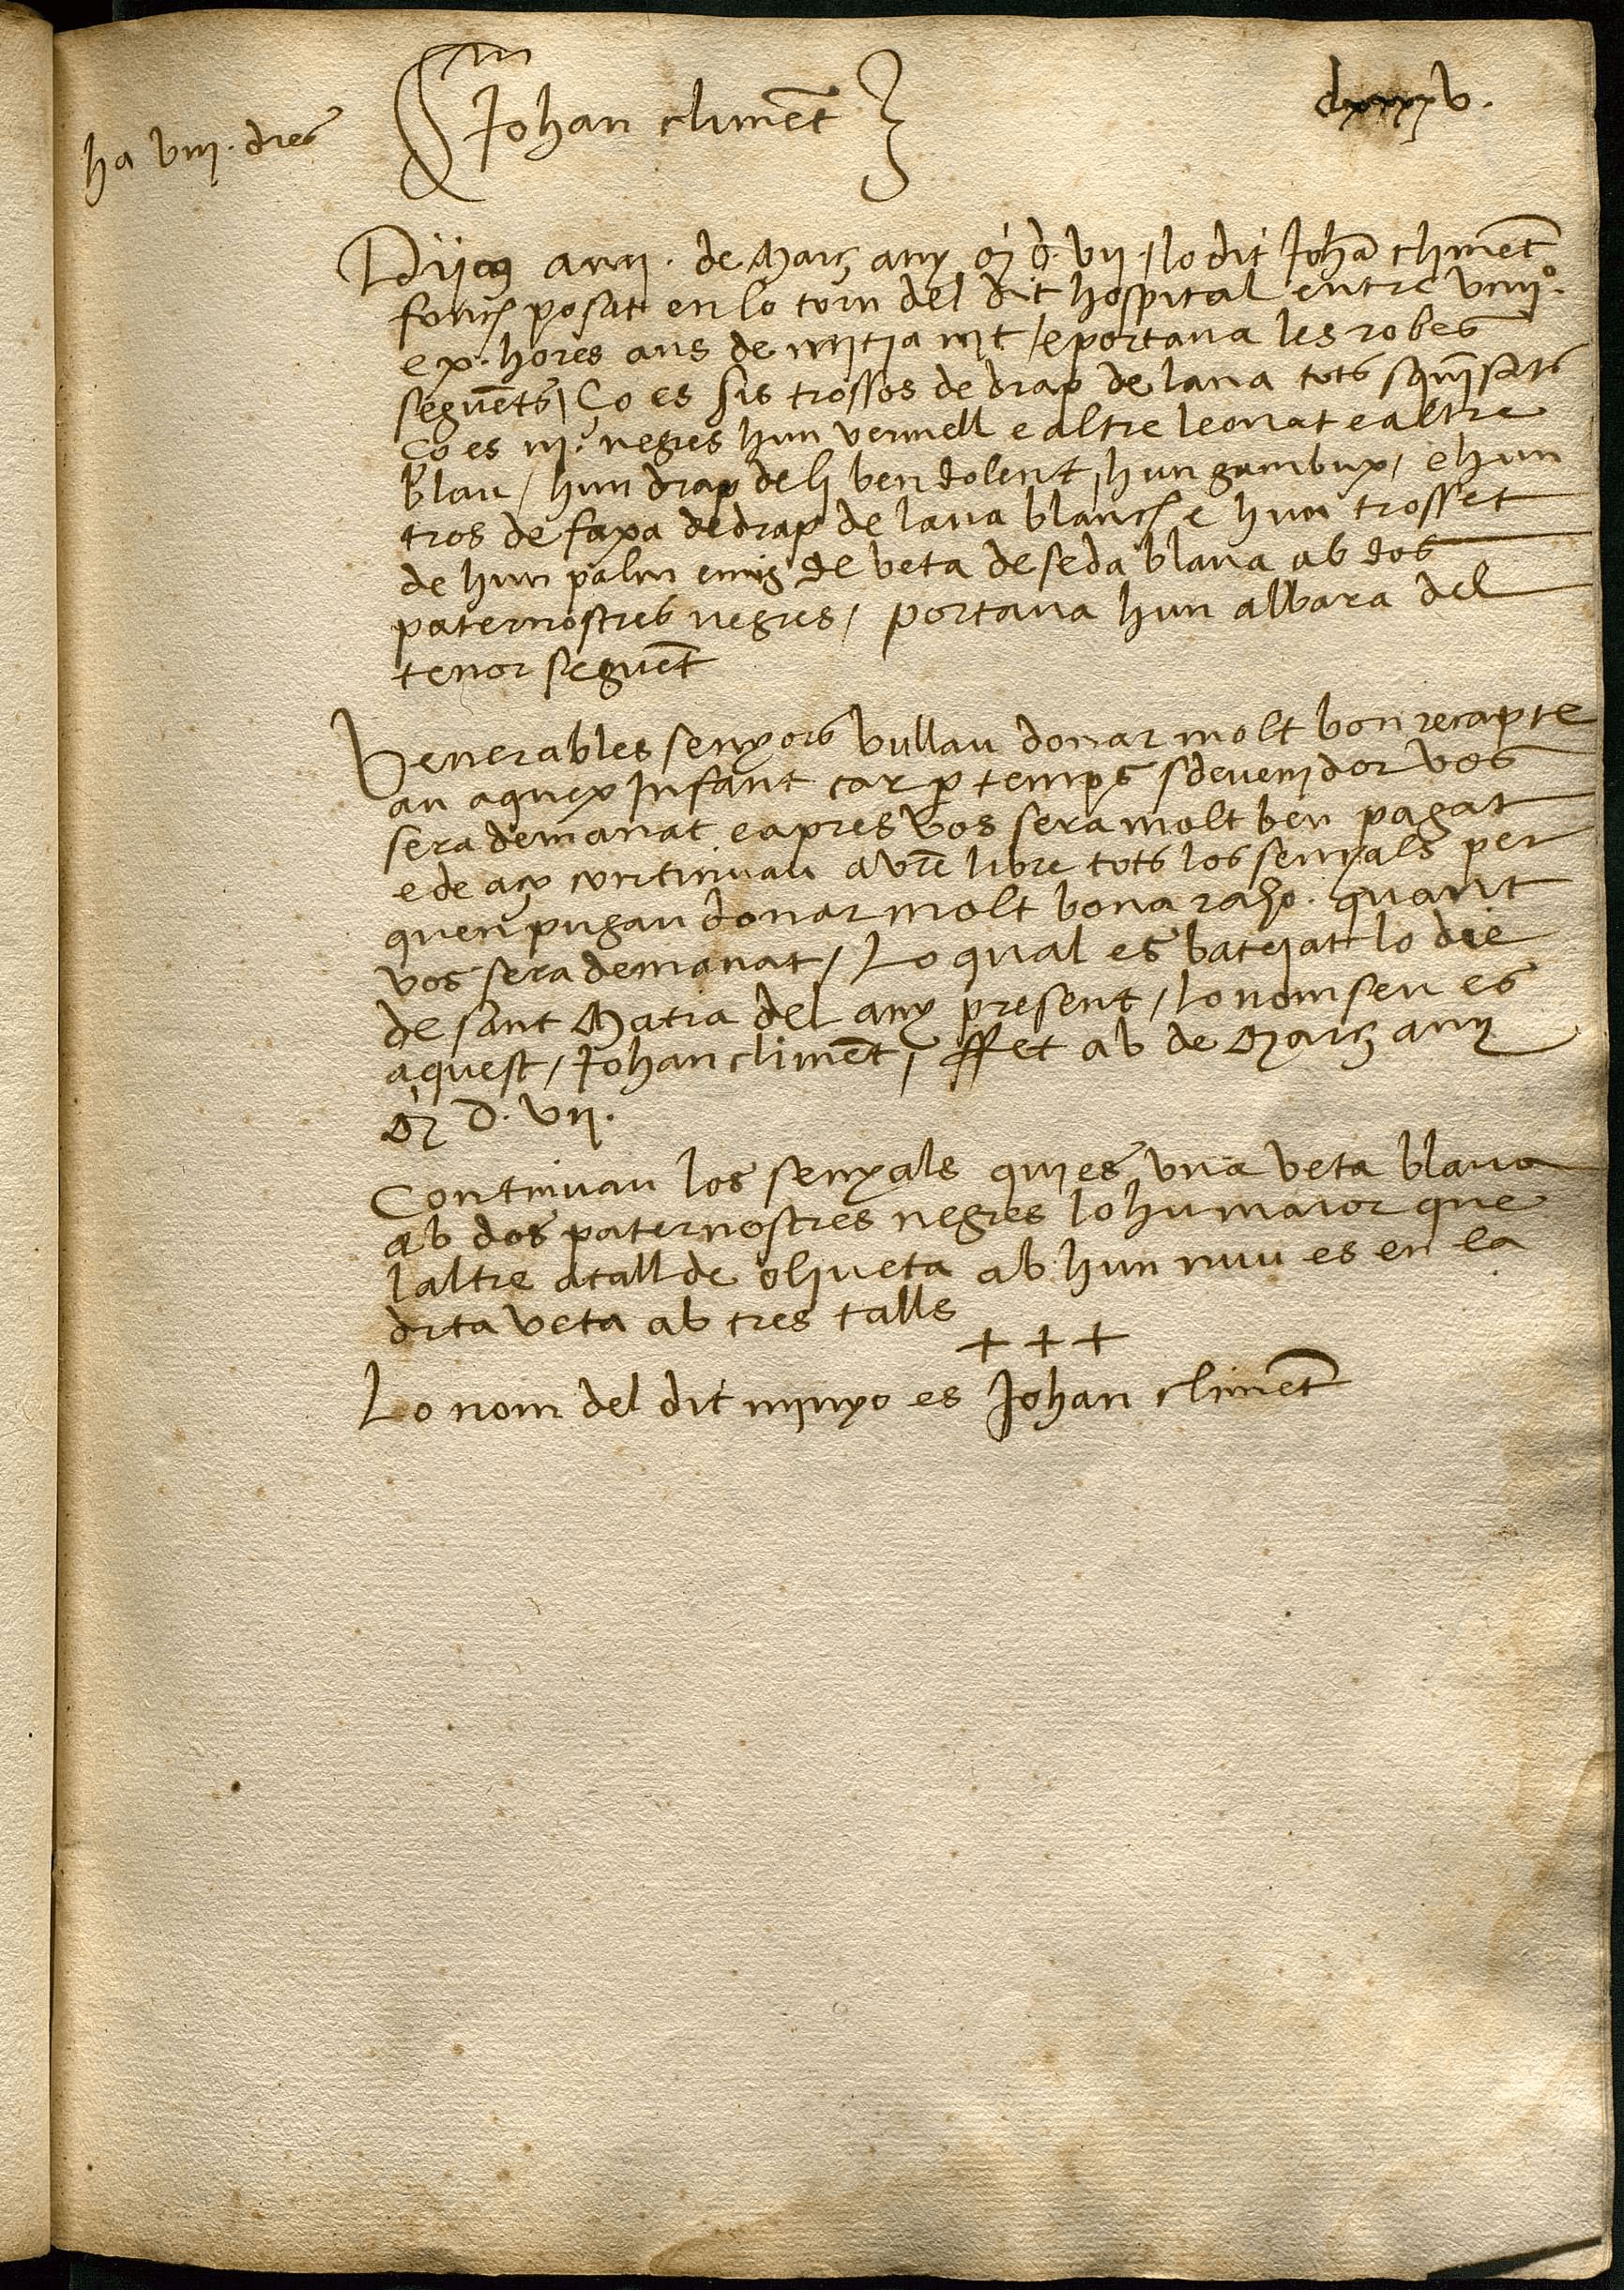 Johan climẽt
dxxxxv.
ha viii. dies
Dijous a iiii. de Març any M d. vii. / lo dit Johã climẽt
fonch posat en lo torn del dit hospital entre viiii°.
e x. hores ans de mitja nit / e portaua les robes
seguẽts / Ço es sis trossos de drap de lana tots squĩsats
ço es iii. negres hun vermell e altre leonat e altre
blau / hun drap de li ben dolent, hun gambux / e hun
tros de faxa de drap de lana blanch e hun trosset
de hun palm e mig de veta de seda blaua ab dos
paternostres negres / portaua hun albara del
tenor seguẽt
Venerables senyors vullau donar molt bon recapte
au aquex Infant car ꝑ temps sdeuenidor vos
sera demanat e apres vos sera molt ben pagat
e de aço continuau a vr̃e libre tots los senyals per
quen pugau donar molt bona raho. quant
vos sera demanat / Lo qual es batejat lo die
de sant Matia del any present / lo nom seu es
aquest / Johan climẽt / ffet ab de Març any
M D. vii.
Continuau los senyals qui es vna veta blaua
ab dos paternostres negres lo hu maior que
laltre a tall de oliueta ab hun nuu es en la
dita veta ab tres talls
+ + +
Lo nom del dit minyo es Johan climẽt